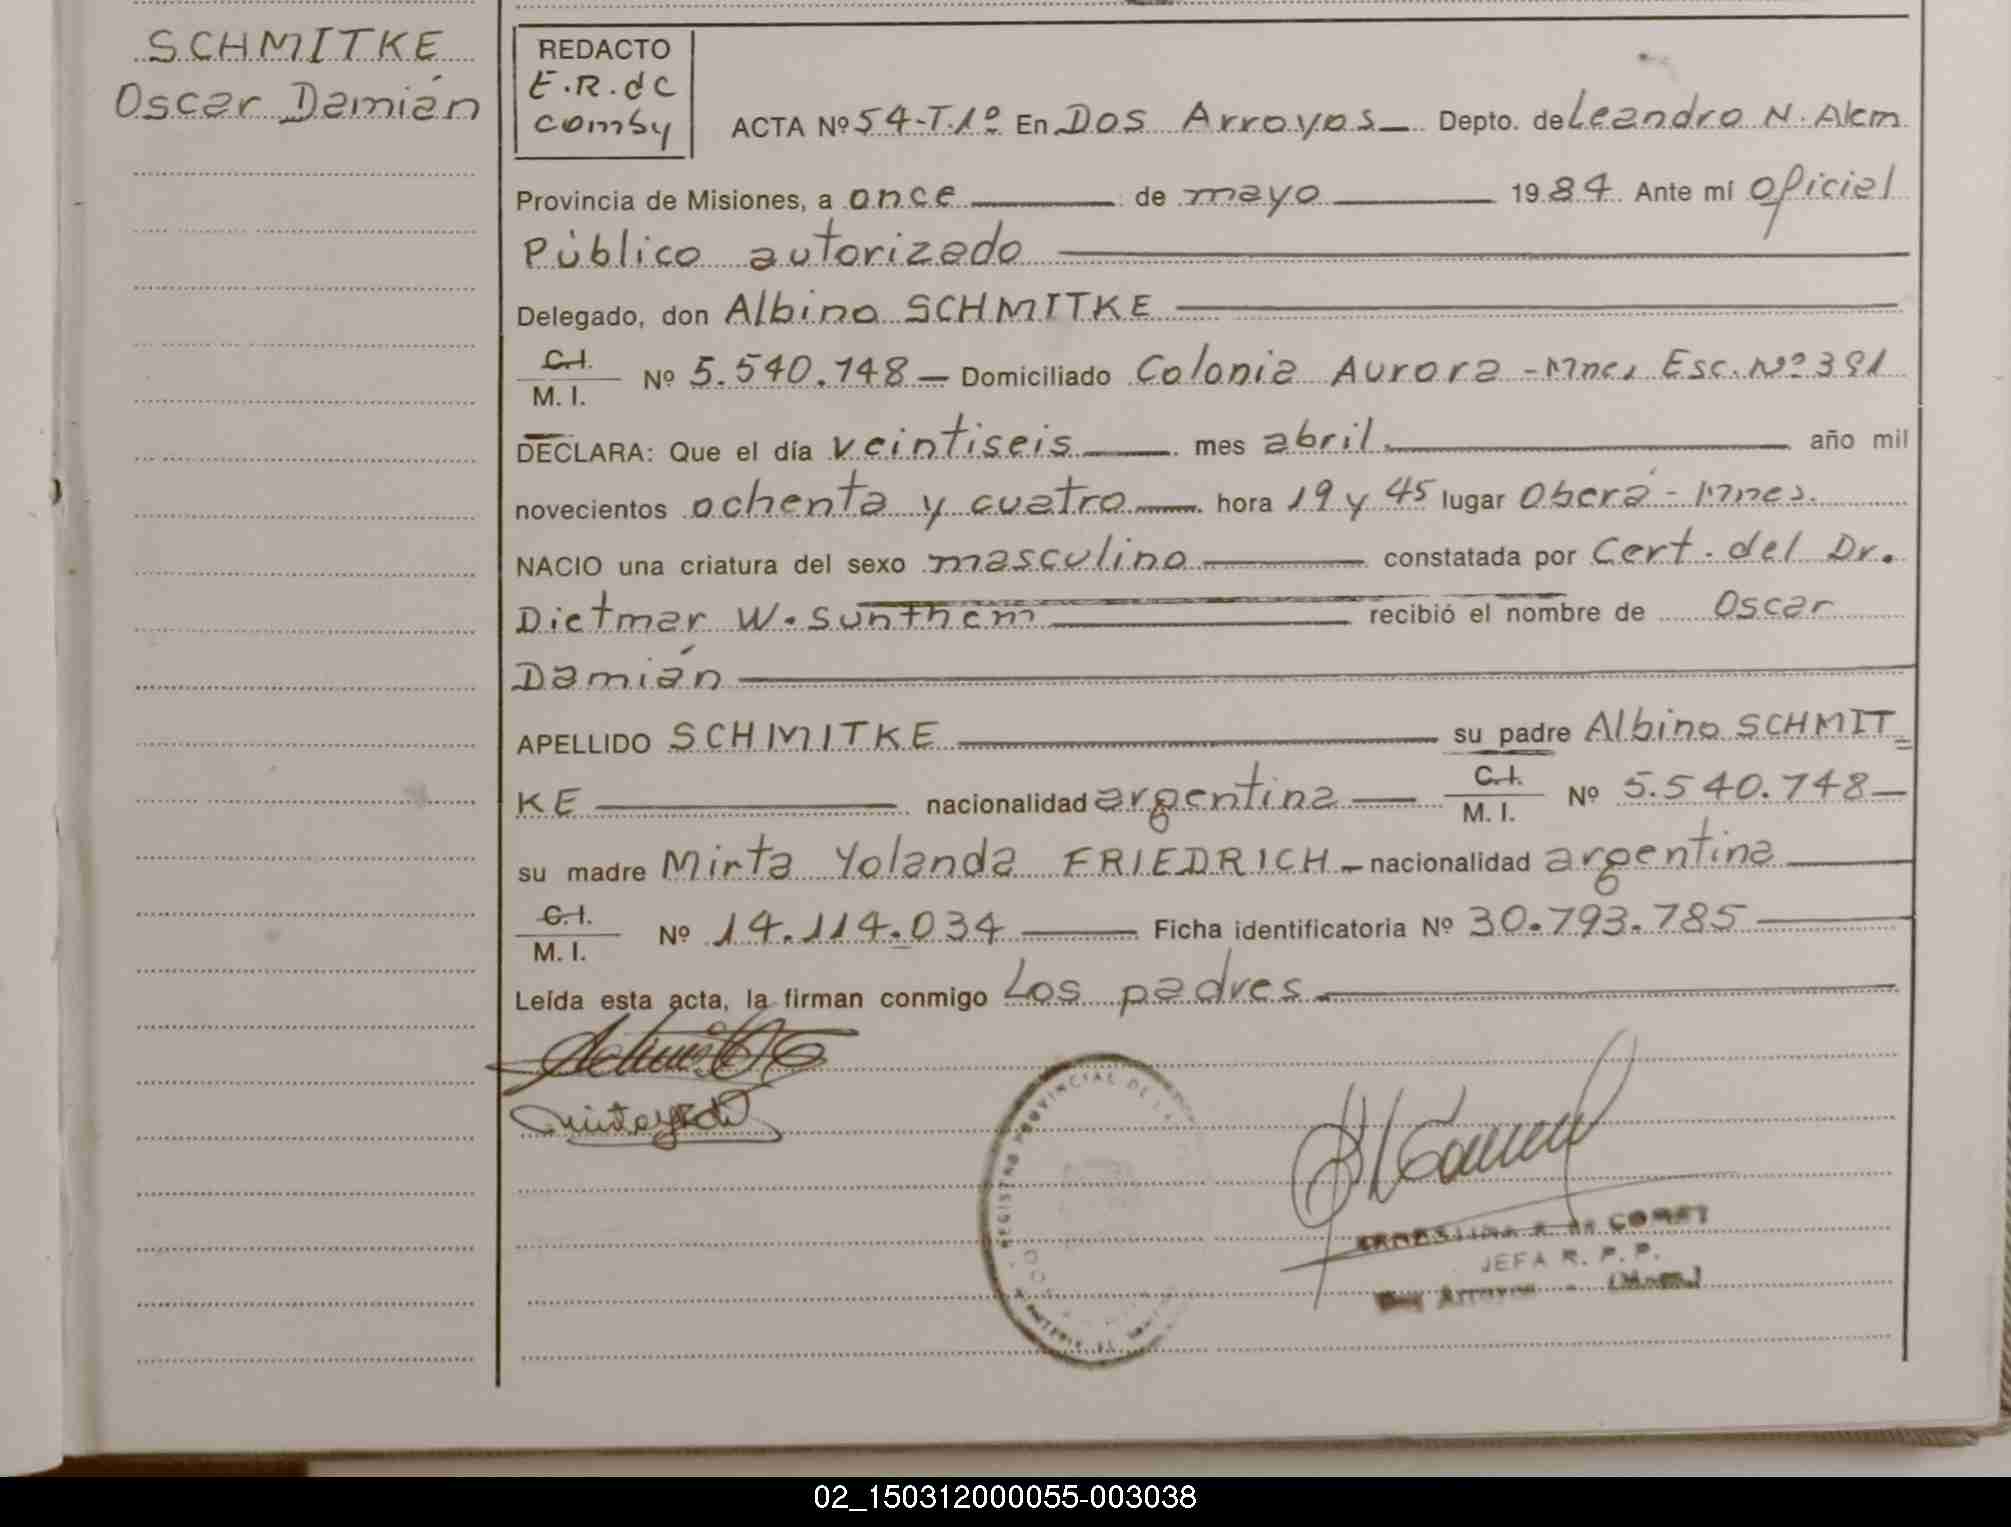 SCHMITKE
Oscar Damián
REDACTO
E.R. de
Comby
ACTA Nº 54-T.1º En Dos Arroyos Depto. de Leandro N. Alem
Provincia de Misiones, a once de mayo 1984 Ante mí oficial
Público autorizado
Delegado, don Albino SCHMITKE
C.I.
M. I. Nº 5.540.748 — Domiciliado Colonia Aurora - Mnes, Esc. Nº 391
DECLARA: Que el día veintiseis mes abril año mil
novecientos ochenta y cuatro hora 19 y 45 lugar Oberá - Mnes.
NACIO una criatura del sexo masculino constatada por Cert. del Dr.
Dietmar W. Sunthem recibió el nombre de Oscar
Damián
APELLIDO SCHMITKE su padre Albino SCHMIT
KE nacionalidad argentina C.I. M. I. Nº 5.540.748
su madre Mirta Yolanda FRIEDRICH nacionalidad argentina
C.I.
M. I. Nº 14.114.034 Ficha identificatoria Nº 30.793.785
Leída esta acta, la firman conmigo Los padres
REGISTRO PROVINCIAL DE LAS
ERNESTINA R. de
JEFA R. P. P.
Dos Arroyos - (Mnes.)
02_150312000055-003038